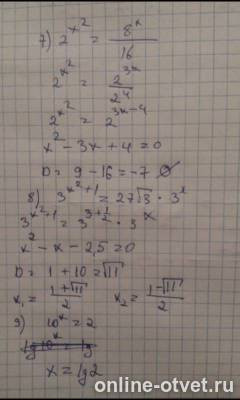 7) 2^{x^2} = \frac{8^x}{16}
2^{x^2} = \frac{2^{3x}}{2^4}
2^{x^2} = 2^{3x-4}
x^2 - 3x + 4 = 0
D = 9 - 16 = -7 ∅
8) 3^{x^2+1} = 27\sqrt{3} · 3^x
3^{x^2+1} = 3^{3+\frac{1}{2}} · 3^x
x^2 - x - 2,5 = 0
D = 1 + 10 = \sqrt{11}
x_1 = \frac{1+\sqrt{11}}{2} x_2 = \frac{1-\sqrt{11}}{2}
9) 10^x = 2
lg 10^x = lg
x = lg 2
online-otvet.ru